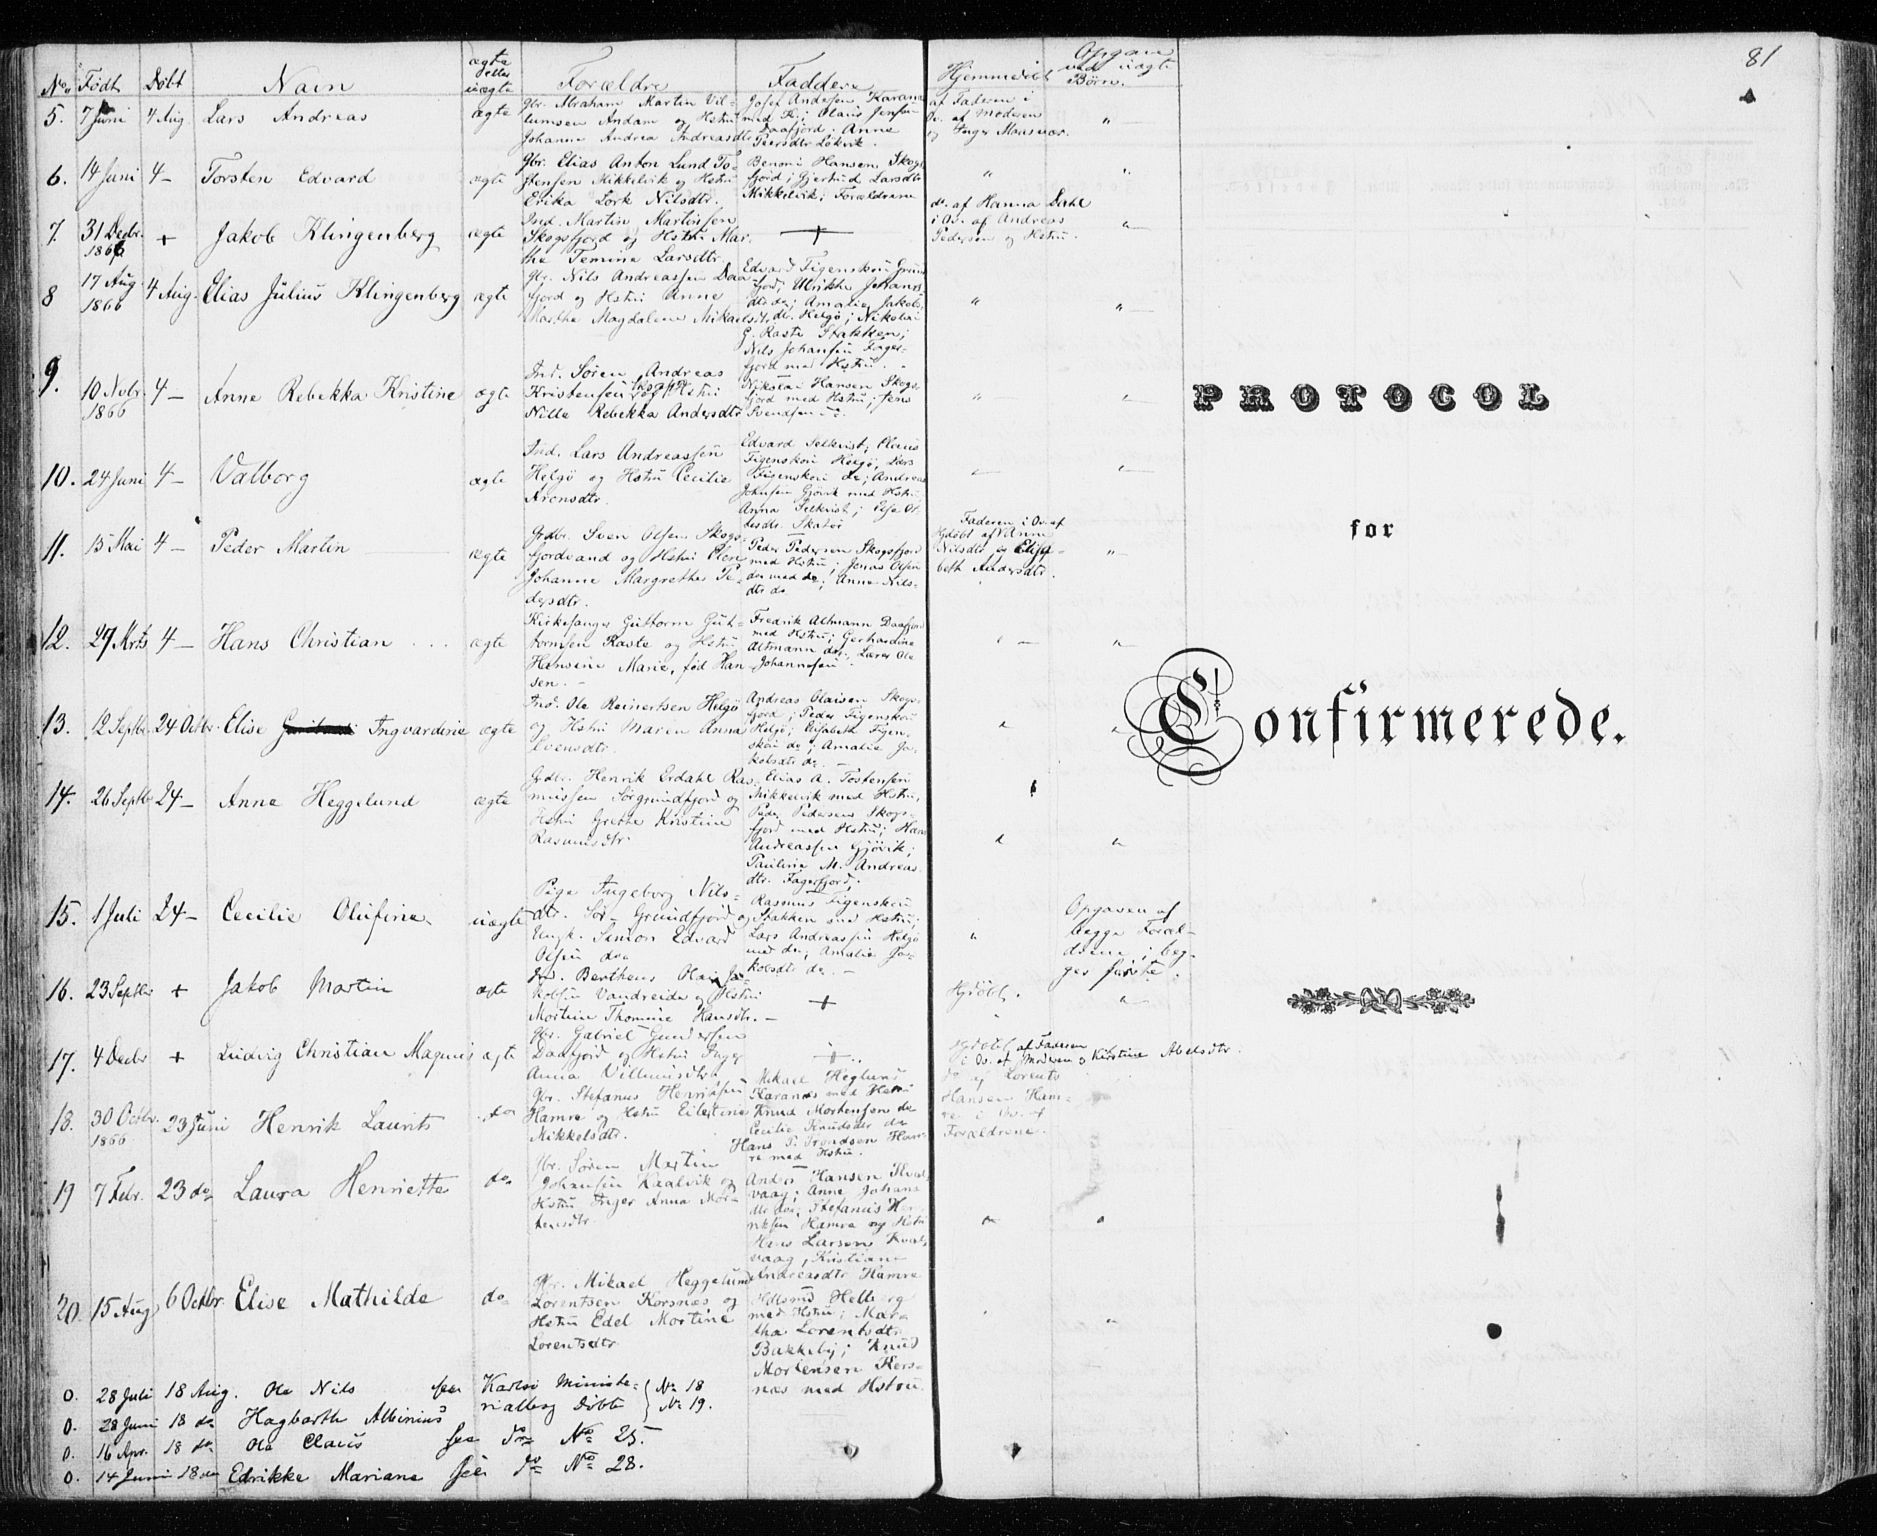 81
No. Født Døbt Navn ægte eller uægte Forældre Faddere Hjemmedøbt Opgave ved uægte Børn.
5. 7 Juni 4 Aug. Lars Andreas ægte
Gbr. Abraham Martin Vil-
lumsen Andam og Hstru
Johanne Andrea Andreasdtr
Josef Andersen Karanæs
med H.; Olaus Jensen
Daafjord; Anne
Peersdtr Løkvik.
af Faderen i
Ov. af Moderen
og Inger Monsnæs.
6. 14 Juni 4 - Torsten Edvard ægte
Gbr. Elias Anton Lund To-
stensen Mikkelvik og Hstru
Erika Lork Nilsdtr.
Benoni Hansen Skogs-
fjord; Gjertrud Larsdtr
Mikkelvik; Forældrene
7. 31 Decbr. 1866 + Jakob Klingenberg ægte
Ind. Martin Martinsen
Skogsfjord og Hstru Mar-
the Temine Larsdtr.
+
do. af Hanna Dahl
i Ov. af Andreas
Pedersen og Hstru.
8 17 Aug. 1866 4 Aug. Elias Julius Klingenberg ægte
Gbr. Nils Andreassen Daa-
fjord og Hstru Anne
Marthe Magdalene Mikaelsdtr.
Edvard Figenskou Grund-
fjord; Ulrikke Johans-
dtr do; Amalie Jakobs-
dtr. Helgø; Nikolai
G. Raste Stakken;
Nils Johansen Finger-
fjord med Hstru.
9. 10 Novbr. 1866 4 - Anne Rebekka Kristine ægte
Ind. Søren Andreas
Kristensen Skogsfjord og Hstru
Nille Rebekka Andersdtr
Nikolai Hansen Skogs-
fjord med Hstru; Jens
Svendsen do.
10. 24 Juni 4 - Valborg ægte
Ind. Lars Andreassen
Helgø og Hstru Cecilie
Aronsdtr.
Edvard Selkvist; Olaus
Figenskou Helgø; Lars
Figenskou do; Andreas
Johnsen Gjøvik med Hstru
Anna Selkvist; Else Ol-
lesdtr. Skatør
11. 15 Mai 4 - Peder Martin ægte
Grdbr. Sven Olsen Skogs-
fjordvand og Hstru Olen
Johanne Margrethe Pe-
dersdtr.
Peder Pedersen Skogsfjord
med Hstru; Jonas Olsen
do med do; Anne Nils-
dtr do
Faderen i Ov. af
Hjdøbt af Anne
Nilsdtr og Elisa-
beth Andersdtr.
12. 27 Mrts 4 - Hans Christian ægte
Kirkesanger Guttorm Gut-
tormsen Raste og Hstru
Hansine Marie, fød Han-
sen.
Fredrik Altmann Daafjord
med Hstru; Gerhardine
Altmann do; Lærer Ole
Johannesen.
13. 12 Septbr. 24 Octbr. Elise Ingvardine ægte
Ind. Ole Reinertsen Helgø
og Hstru Maren Anna
Svensdtr.
Andreas Olaisen Skogs-
fjord; Peder Figenskou
Helgø; Elisabeth Figen-
skou do; Amalie Ja-
kobsdtr do.
14. 26 Septbr 24 - Anne Heggelund ægte
Grdbr. Henrik Erdahl Ras-
mussen Sørgrundfjord og
Hstru Grethe Kristine
Rasmusdtr
Elias A. Tostensen
Mikkelvik med Hstru,
Peder Pedersen Skogs-
fjord med Hstru; Hans
Andreassen Gjøvik;
Pauline M. Andreas-
dtr. Fagerfjord;
15. 1 Juli 24 - Cecilie Olufine uægte
Pige Ingeborg Nils-
dtr. Sør-Grundfjord og
Ungk. Simon Edvard
Olsen do
Rasmus Figenskou
Stakken med Hstru;
Lars Andreassen Helgø
med do; Amalie Ja-
kobsdtr do.
Opgaven af
begge Foræl-
drene; beg-
ges første.
16. 23 Septbr + Jakob Martin ægte
Ind. Berthens Olai Ja-
kobsen Vandreida og Hstru
Mortine Thomine Hansdtr.
+
Hjdøbt.
17. 4 Decbr + Ludvig Christian Magnus ægte
Gbr. Gabriel Gundersen
Daafjord og Hstru Inger
Anna Villumsdtr
+
Hjdøbt af Faderen
i Ov. af Moderen og Kirstine Abelsdtr.
18. 30 Octbr. 1866 23 Juni Henrik Laurits do
Gbr. Stefanus Henriksen
Hamre og Hstru Eilertine
Mikkelsdtr.
Mikael Heglund
Karanæs med Hstru
Knud Mortensen do
Cecilie Knudsdtr do
Hans P. Trondsen Ham-
re med Hstru.
do af Lorents
Hansen Ham-
re i Ov. af
Forældrene.
19 7 Febr. 23 do Laura Henriette do
Gbr. Søren Martin
Johansen Kaalvik og
Hstru Inger Anna Mor-
tensdtr.
Anders Hansen Skools-
vaag; Anne Johans-
dtr do; Stefanus Hen-
riksen Hamre og Hstru
Hans Larsen
vaag, Kristiane
Andreasdtr Hamre
20. 15 Aug 6 Octbr. Elise Mathilde do
Gbr. Mikael Heggelund
Lorentsen Korsnæs og
Hstru Edel Mortine
Lorentsdtr
Helberg
med Hstru; Mar-
tha Lorentsdtr
Bakkeby; Knud
Mortensen Kors-
næs med Hstru.
0. 28 Juli 18 Aug. Ole Nils see Karlsø Ministe- No 18
0. 28 Juni 18 do Hagbarth Albinius rialbog Døbte No 19.
0. 16 Apr. 18 do Ole Claus see do No 25.
0. 14 Juni 18 do Edrikke Mariane see do No 28.
PROTOCOL
for
Confirmerede.